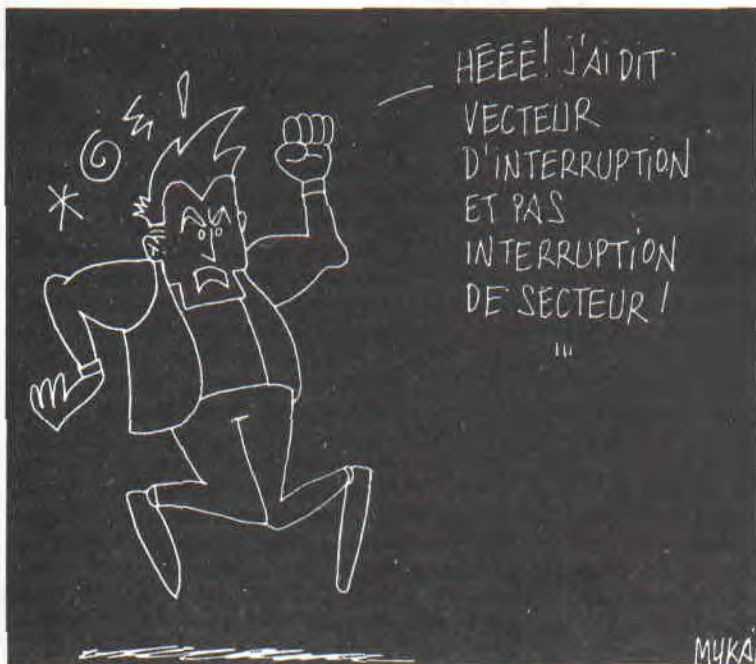 HÉÉÉ! J'AI DIT
VECTEUR
D'INTERRUPTION
ET PAS
INTERRUPTION
DE SECTEUR!
MYKAÏ